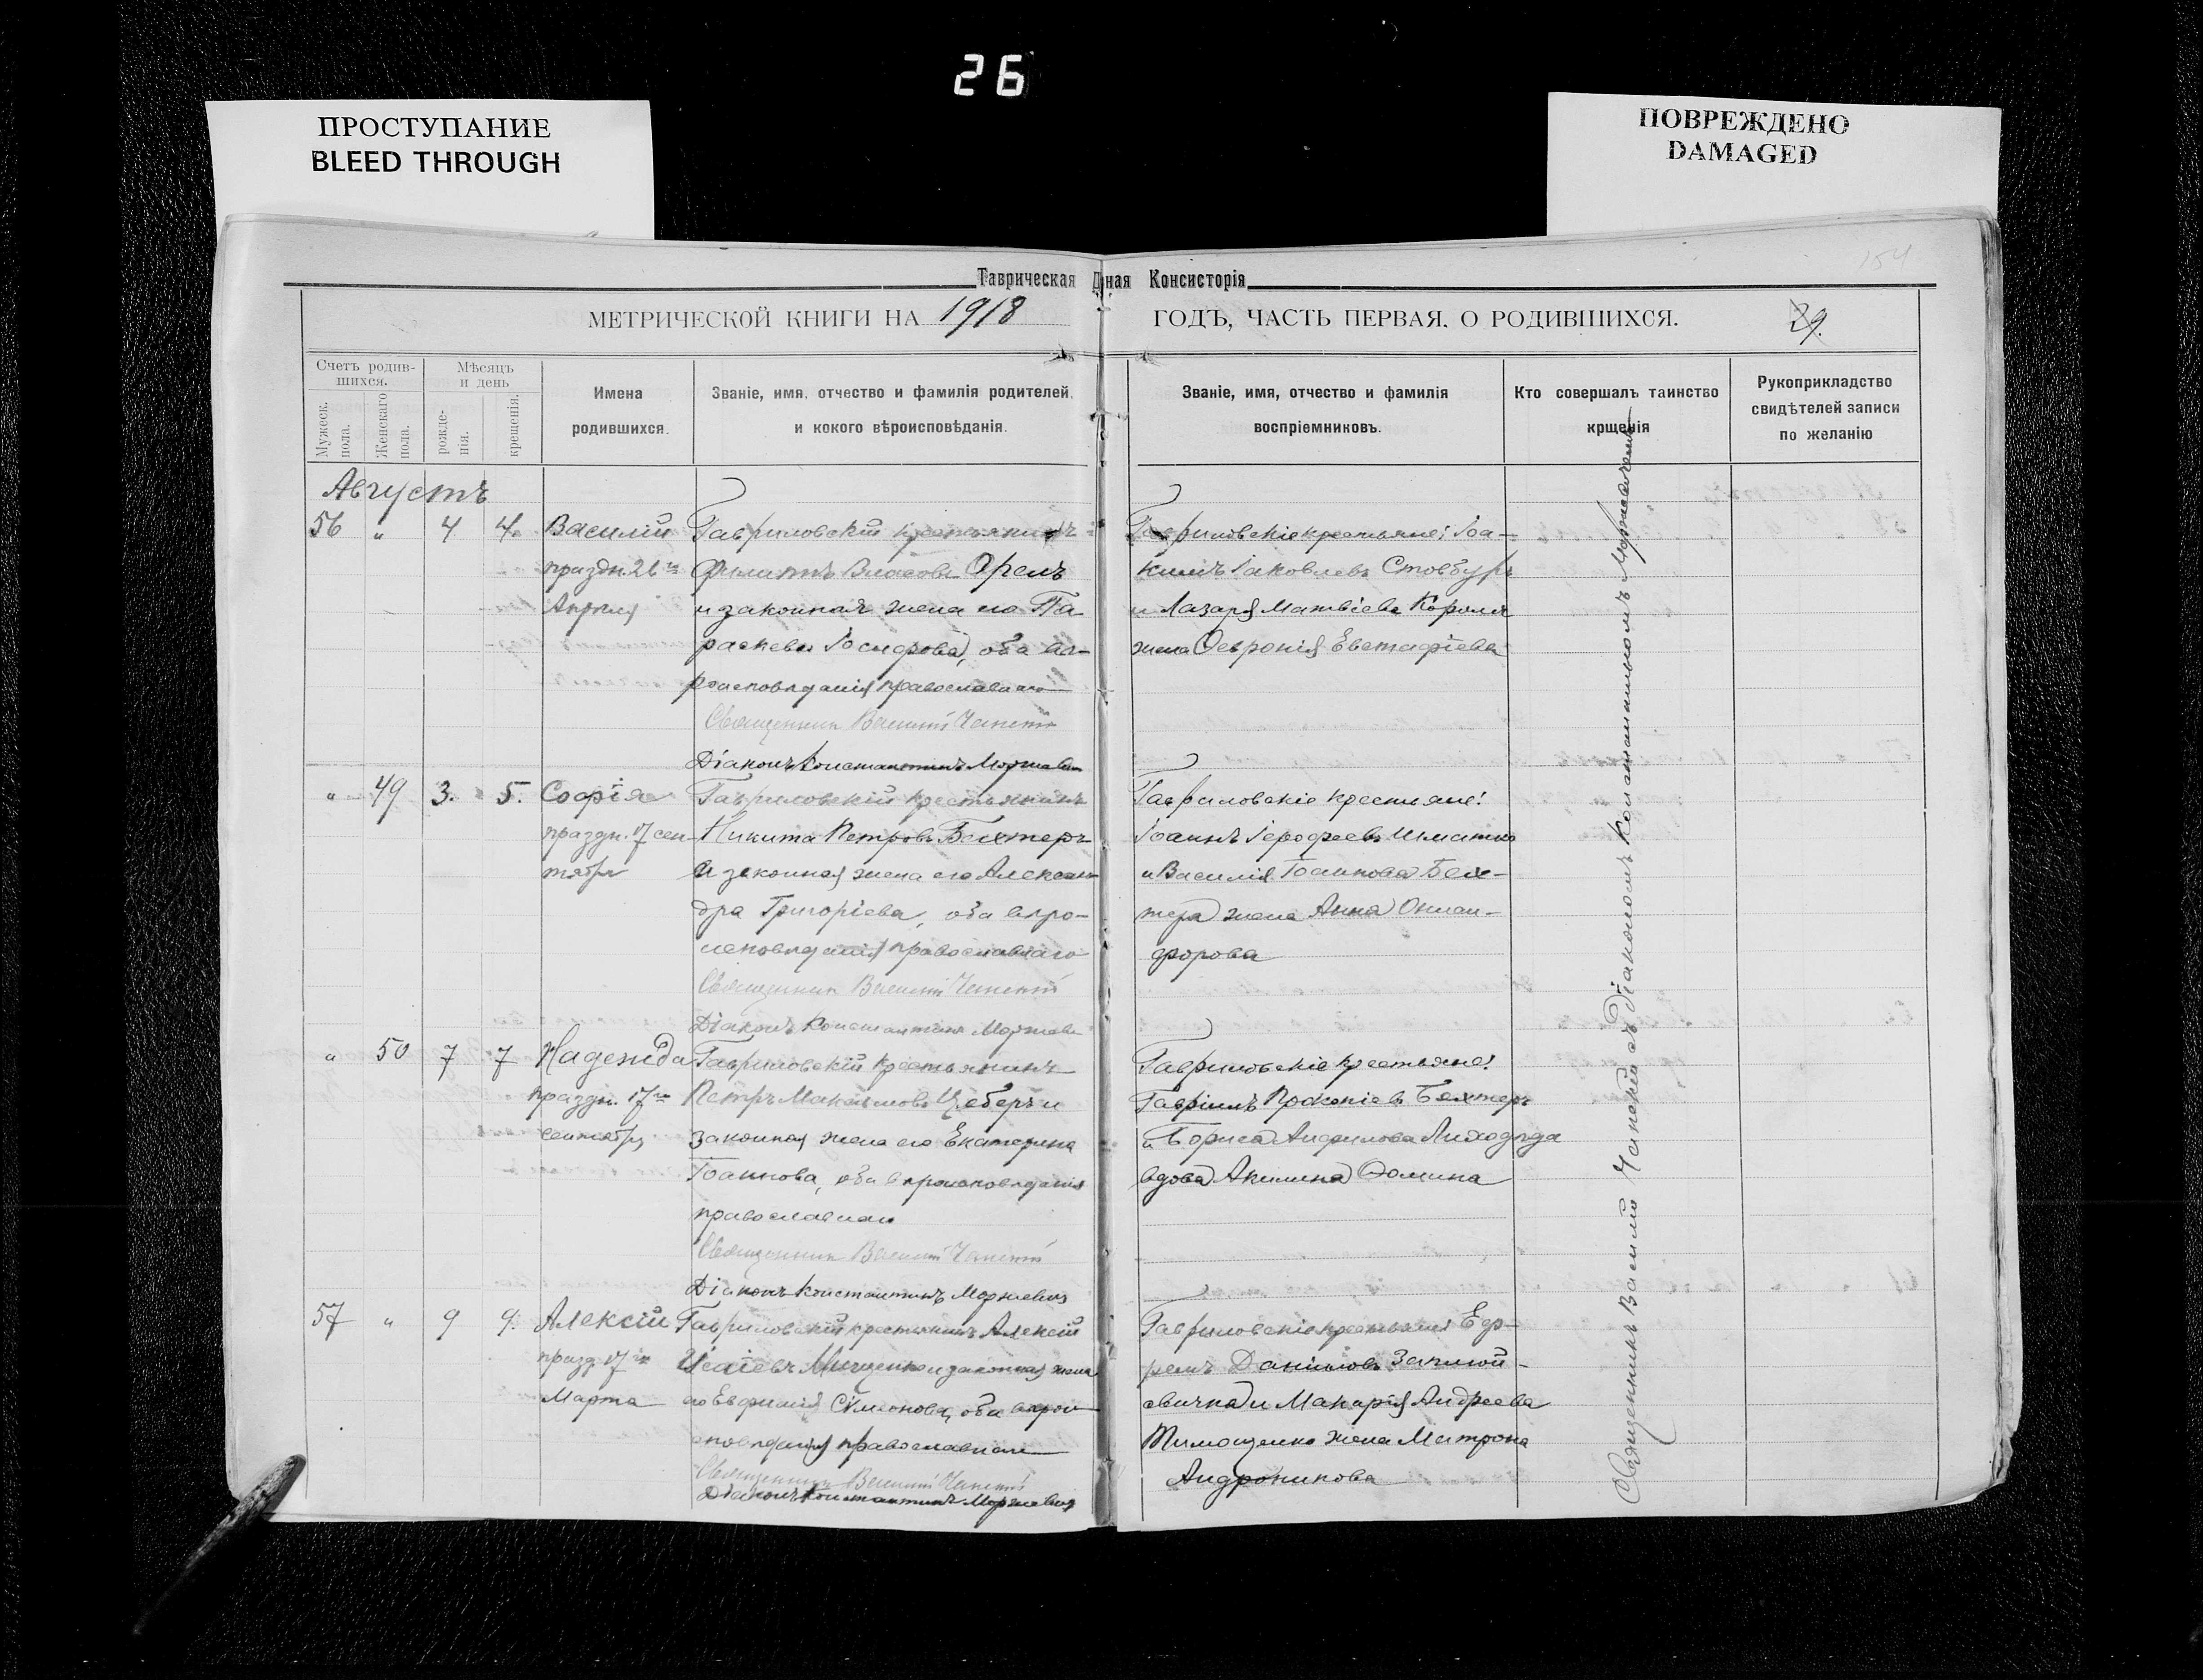 26
ПРОСТУПАНИЕ
BLEED THROUGH
ПОВРЕЖДЕНО
DAMAGED
154
Таврическая Д ная Консисторія
МЕТРИЧЕСКОЙ КНИГИ НА 1918 ГОДЪ, ЧАСТЬ ПЕРВАЯ. О РОДИВШИХСЯ. 29.
Счетъ родив-
шихся.
Мужеск.
пола.
Женскаго
пола.
Мѣсяцъ
и день
рожде-
нія.
крещенія.
Имена
родившихся.
Званіе, имя, отчество и фамилія родителей,
и кокого вѣроисповѣданія.
Званіе, имя, отчество и фамилія
воспріемниковъ.
Кто совершалъ таинство
крщенія
Рукоприкладство
свидѣтелей записи
по желанію
Августъ
56 " 4 4.
Василій
праздн. 26го
Апреля
Гавриловскій крестьянинъ
Филиппъ Власовъ Орелъ
и законная жена его Па-
раскева Іосифова, оба вѣ-
роисповѣданія православнаго
Священникъ Василій
Діаконъ Константинъ
Гавриловскіе крестьяне: Іоа-
кимъ Іаковлевъ Стовбуръ
и Лазаря Матвіева Короля
жена Февронія Евстафіева
" 49 3. 5.
Софія
праздн. 17 сен-
тября
Гавриловскій крестьянинъ
Никита Петровъ Бехтеръ
и законная жена его Алексан-
дра Григоріева, оба вѣро-
исповѣданія православнаго
Священникъ Василій
Діаконъ Константинъ
Гавриловскіе крестьяне:
Іоаннъ Іерофеевъ Шматко
и Василія Іоаннова Бех-
тера жена Анна
форова
" 50 7 7
Надежда
праздн. 17го
сентября
Гавриловскій крестьянинъ
Петръ Максимовъ Цеберъ и
законная жена его Екатерина
Іоаннова, оба вѣроисповѣданія
православнаго
Священникъ Василій
Діаконъ Константинъ
Гавриловскіе крестьяне:
Гавріилъ Прокопіевъ Бехтеръ
и Бориса Лиходѣда
вдова Акилина Фомина
57 " 9 9.
Алексій
празд. 17го
Марта
Гавриловскій крестьянинъ Алексій
Исаіевъ Мищенко и законная жена
его Евфимія Сімеонова, оба вѣрои-
сповѣданія православнаго
Священникъ Василій
Діаконъ Константинъ
Гавриловскіе крестьяне: Еф-
ремъ Даніиловъ
и Макарія Андреева
Тимощенко жена Матрона
Андроникова
Священникъ Василій съ Діакономъ Константиномъ